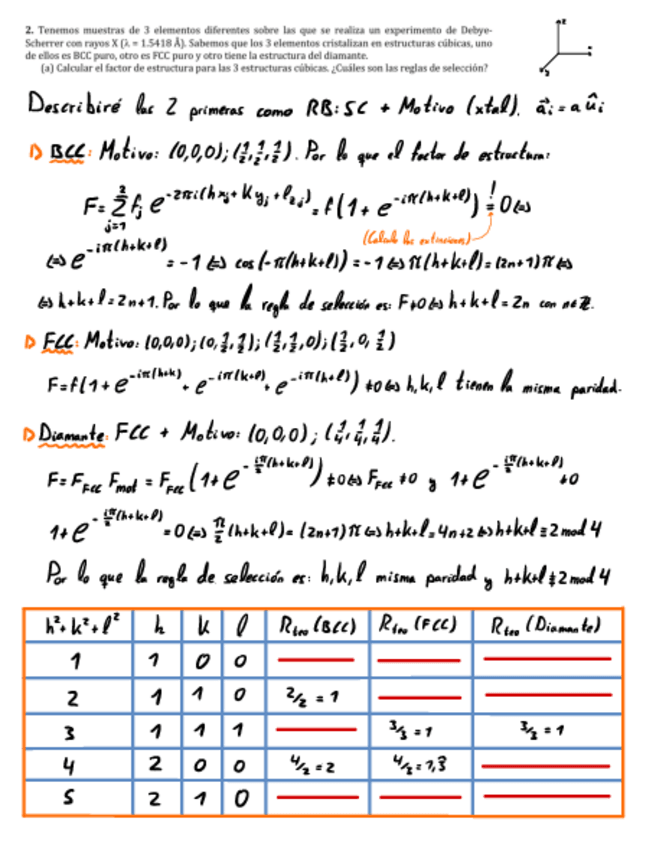 2. Tenemos muestras de 3 elementos diferentes sobre las que se realiza un experimento de Debye-
Scherrer con rayos X (λ = 1.5418 Å). Sabemos que los 3 elementos cristalizan en estructuras cúbicas, uno
de ellos es BCC puro, otro es FCC puro y otro tiene la estructura del diamante.
(a) Calcular el factor de estructura para las 3 estructuras cúbicas. ¿Cuáles son las reglas de selección?
z
y
Describiré las 2 primeras como RB: SC + Motivo (xtal). a⃗ᵢ = a ûᵢ
BCC: Motivo: (0,0,0); (1/2, 1/2, 1/2). Por lo que el factor de estructura:
F = Σ_{j=1}^{2} fⱼ e^{-2πi(hxⱼ + kyⱼ + lzⱼ)} = f(1 + e^{-iπ(h+k+l)}) =! 0 ⇔
(Calculo las extinciones)
⇔ e^{-iπ(h+k+l)} = -1 ⇔ cos(-π(h+k+l)) = -1 ⇔ π(h+k+l) = (2n+1)π ⇔
⇔ h+k+l = 2n+1. Por lo que la regla de selección es: F≠0 ⇔ h+k+l = 2n con n∈ℤ.
FCC: Motivo: (0,0,0); (0, 1/2, 1/2); (1/2, 1/2, 0); (1/2, 0, 1/2)
F = f(1 + e^{-iπ(h+k)} + e^{-iπ(k+l)} + e^{-iπ(h+l)}) ≠ 0 ⇔ h, k, l tienen la misma paridad.
Diamante: FCC + Motivo: (0,0,0); (1/4, 1/4, 1/4).
F = F_FCC F_mot = F_FCC (1 + e^{-iπ/2(h+k+l)}) ≠ 0 ⇔ F_FCC ≠ 0 y 1 + e^{-iπ/2(h+k+l)} ≠ 0
1 + e^{-iπ/2(h+k+l)} = 0 ⇔ π/2(h+k+l) = (2n+1)π ⇔ h+k+l = 4n+2 ⇔ h+k+l ≡ 2 mod 4
Por lo que la regla de selección es: h, k, l misma paridad y h+k+l ≢ 2 mod 4
h²+k²+l² h k l R_teo (BCC) R_teo (FCC) R_teo (Diamante)
1 1 0 0
2 1 1 0 2/2 = 1
3 1 1 1 3/3 = 1 3/3 = 1
4 2 0 0 4/2 = 2 4/3 = 1,3
5 2 1 0